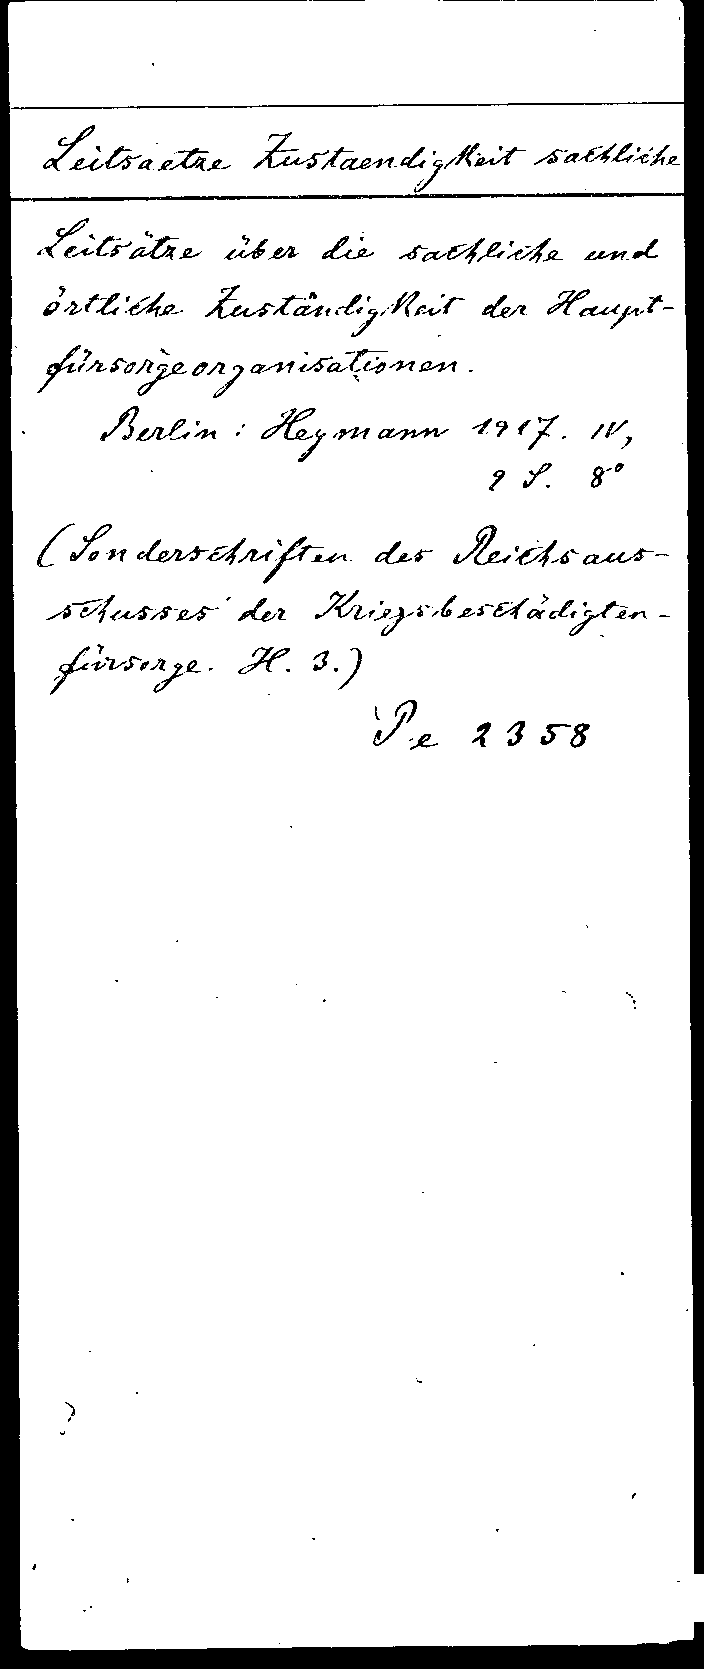 Leitsaetze Zustaendigkeit sachliche
Leitsätze über die sachliche und
örtliche Zuständigkeit der Haupt-
fürsorgeorganisationen.
Berlin: Heymann 1917. IV,
9 S. 8°
(Sonderschriften des Reichsaus-
schusses der Kriegsbeschädigten-
fürsorge. H. 3.)
Pe 2358